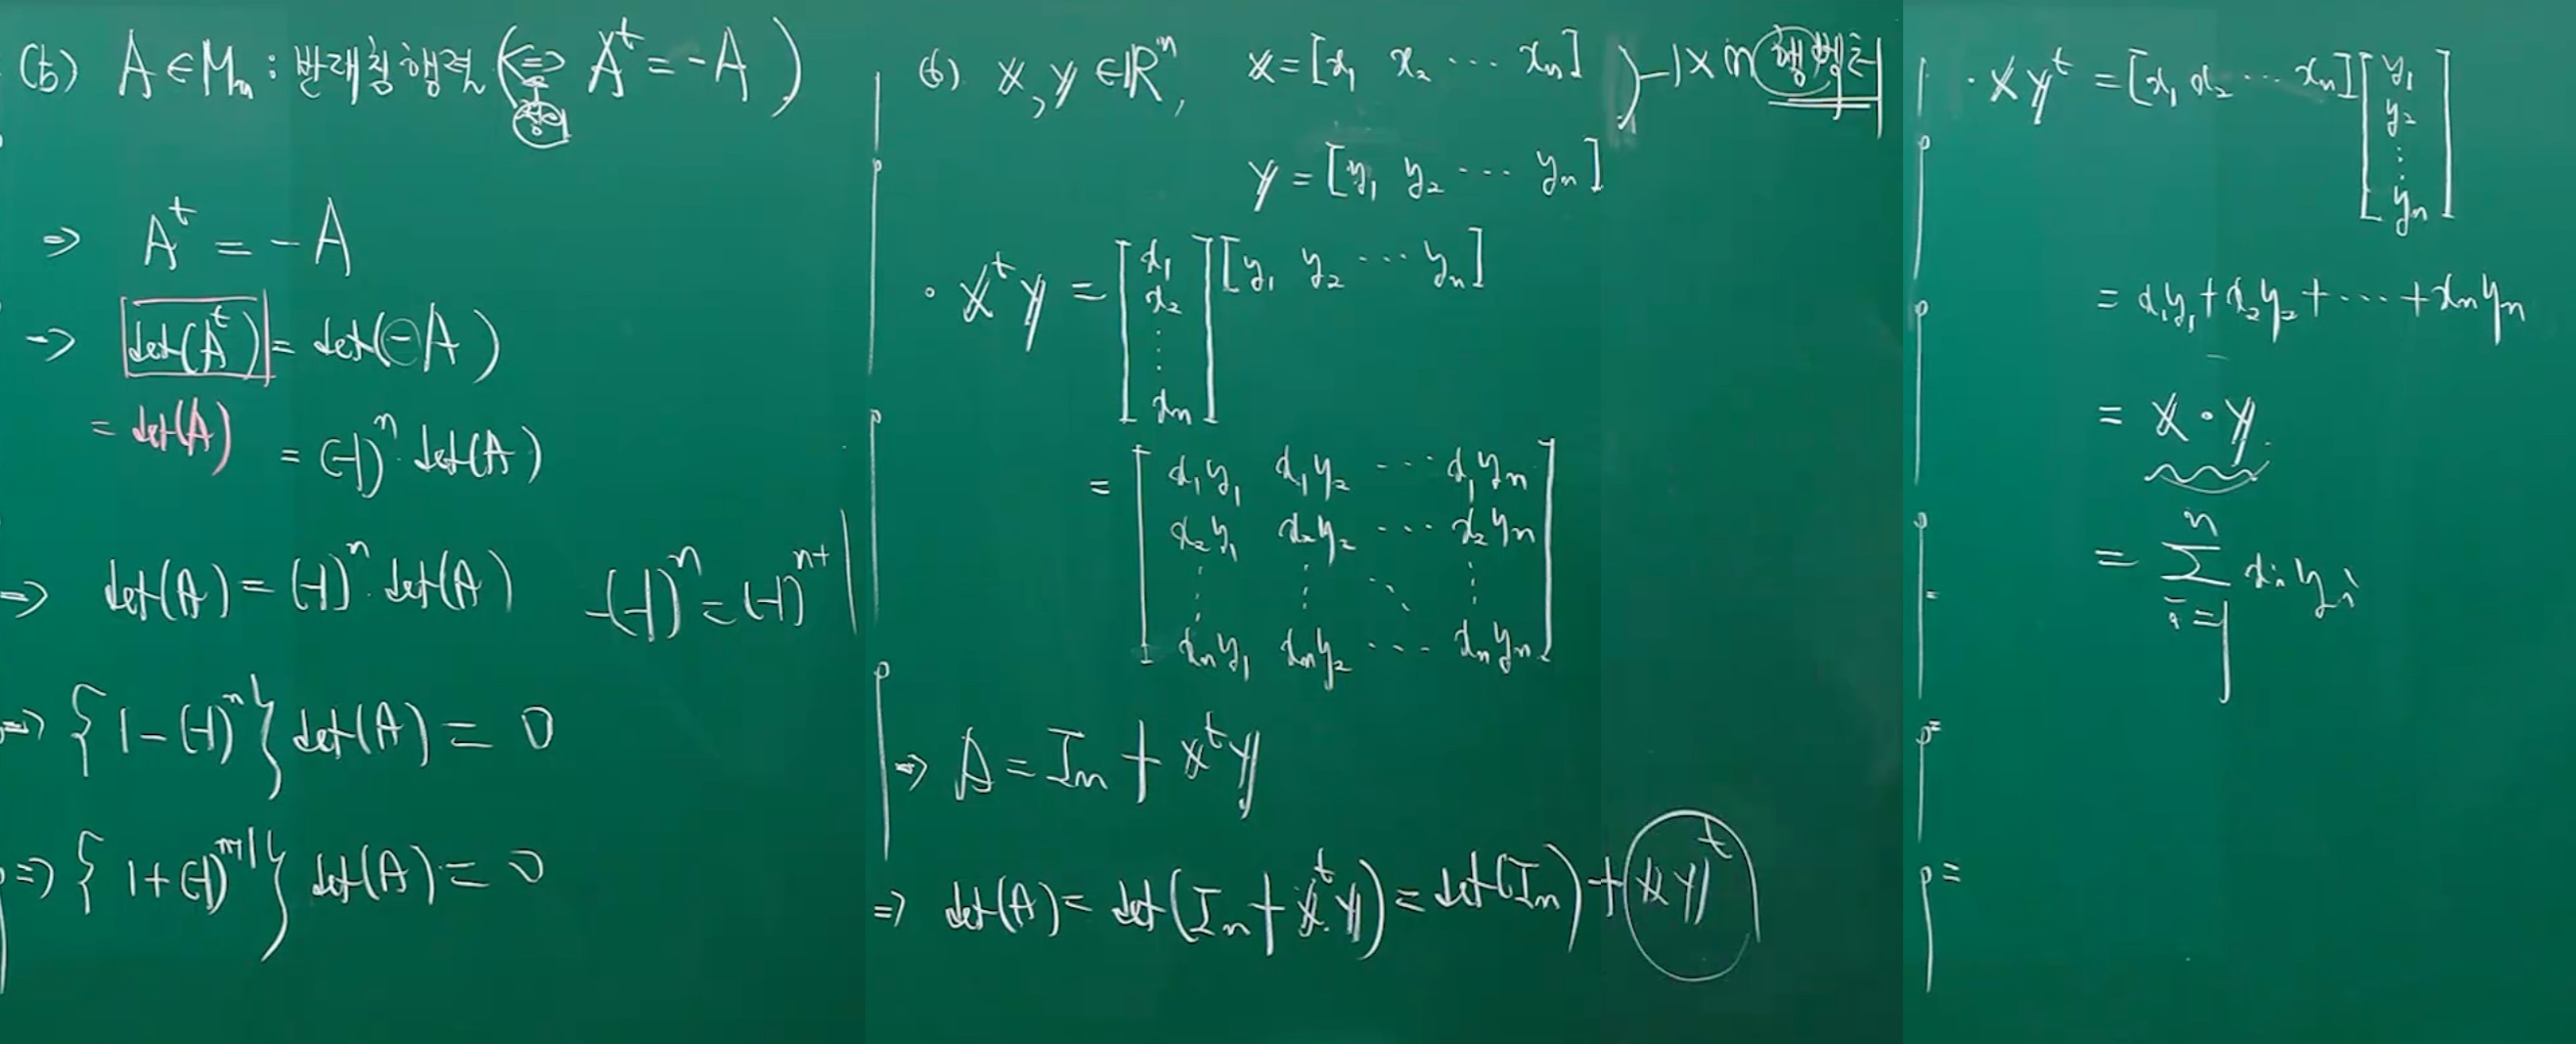 (5) A ∈ Mₙ : 반대칭행렬 (<=> Aᵗ = -A)
정의
=> Aᵗ = -A
=> det(Aᵗ) = det(-A)
= det(A) = (-1)ⁿ·det(A)
=> det(A) = (-1)ⁿ·det(A) -(-1)ⁿ = (-1)ⁿ⁺¹
=> {1-(-1)ⁿ} det(A) = 0
=> {1+(-1)ⁿ⁺¹} det(A) = 0
(6) x, y ∈ ℝⁿ, x = [x₁ x₂ ··· xₙ] ) - 1×n 행벡터
y = [y₁ y₂ ··· yₙ]
· xᵗy = [x₁ x₂ ⋮ xₙ] [y₁ y₂ ··· yₙ]
= [x₁y₁ x₁y₂ ··· x₁yₙ
x₂y₁ x₂y₂ ··· x₂yₙ
⋮ ⋮ ⋱ ⋮
xₙy₁ xₙy₂ ··· xₙyₙ]
=> A = Iₙ + xᵗy
=> det(A) = det(Iₙ + xᵗy) = det(Iₙ) + xyᵗ
· xyᵗ = [x₁ x₂ ··· xₙ] [y₁ y₂ ⋮ yₙ]
= x₁y₁ + x₂y₂ + ··· + xₙyₙ
= x · y
= ∑ⁿᵢ₌₁ xᵢyᵢ